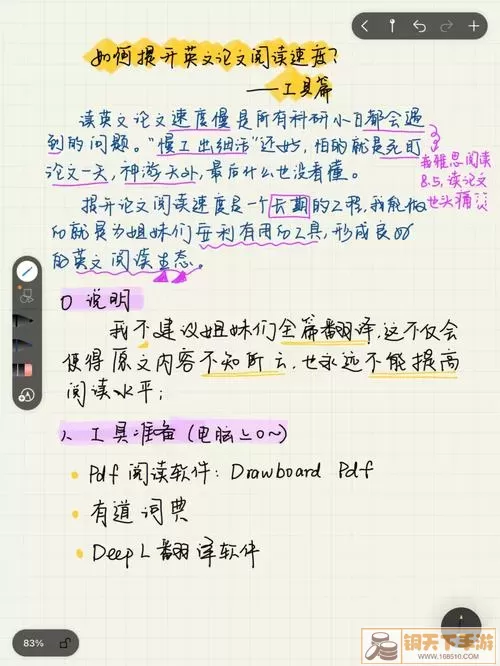 如何提升英文论文阅读速度?
——工具篇
读英文论文速度慢是所有科研小白都会遇
到的问题。"慢工出细活"还好,怕的就是克盯
论文一天,神游天外,最后什么也没看懂。
我雅思阅读
8.5,读论文
也头痛
提升论文阅读速度是一个长期的工程,我能做
的就是为姐妹们安利有用的工具,形成良好
的英文阅读生态。
0 说明
我不建议姐妹们全篇翻译,这不仅会
使得原文内容不知所云,也永远不能提高
阅读水平;
1、工具准备(电脑上~)
Pdf 阅读软件: Drawboard Pdf
有道词典
DeepL翻译软件
83%
钢天下手游
www.168510.com